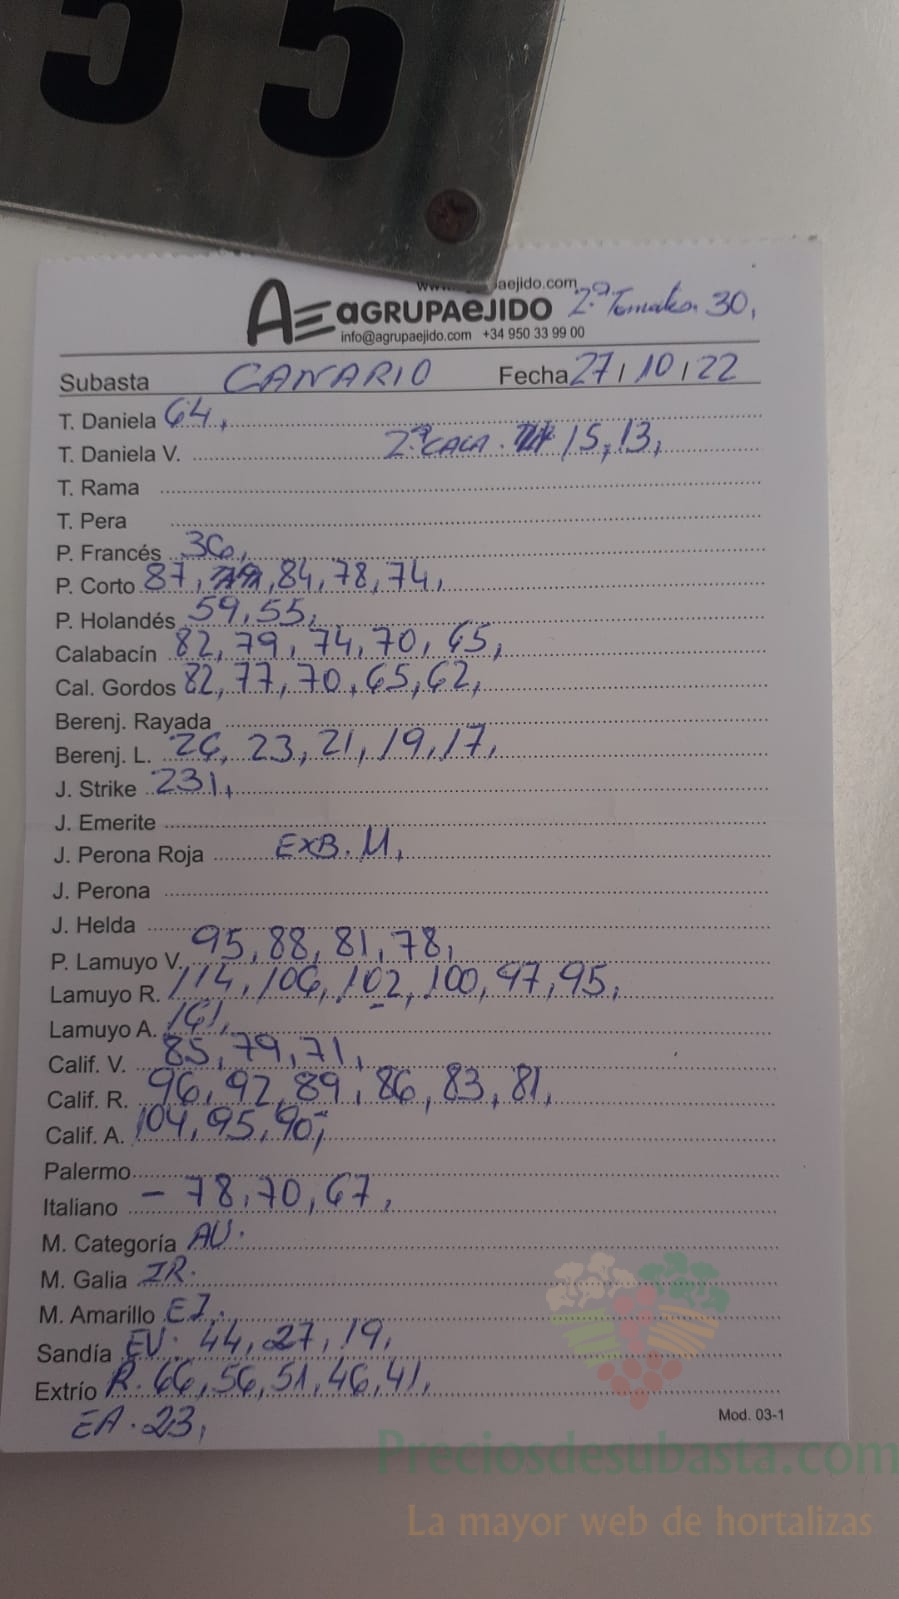 55
www. aejido.com
AGRUPAEJIDO 2ª Tomates. 30,
info@agrupaejido.com +34 950 33 99 00
Subasta CANARIO Fecha 27/10/22
T. Daniela 64,
T. Daniela V. 2ª CALA. 15, 13,
T. Rama
T. Pera
P. Francés 36,
P. Corto 87, 84, 78, 74,
P. Holandés 59, 55,
Calabacín 82, 79, 74, 70, 65,
Cal. Gordos 82, 77, 70, 65, 62,
Berenj. Rayada
Berenj. L. 26, 23, 21, 19, 17,
J. Strike 231,
J. Emerite
J. Perona Roja EXB. M,
J. Perona
J. Helda
P. Lamuyo V. 95, 88, 81, 78,
Lamuyo R. 114, 106, 102, 100, 97, 95,
Lamuyo A. 161,
Calif. V. 85, 79, 71,
Calif. R. 96, 92, 89, 86, 83, 81,
Calif. A. 104, 95, 90,
Palermo
Italiano - 78, 70, 67,
M. Categoría AU.
M. Galia IR.
M. Amarillo EJ.
Sandía EV. 44, 27, 19,
Extrío R. 66, 56, 51, 46, 41,
EA. 23,
Mod. 03-1
Preciosdesubasta.com
La mayor web de hortalizas